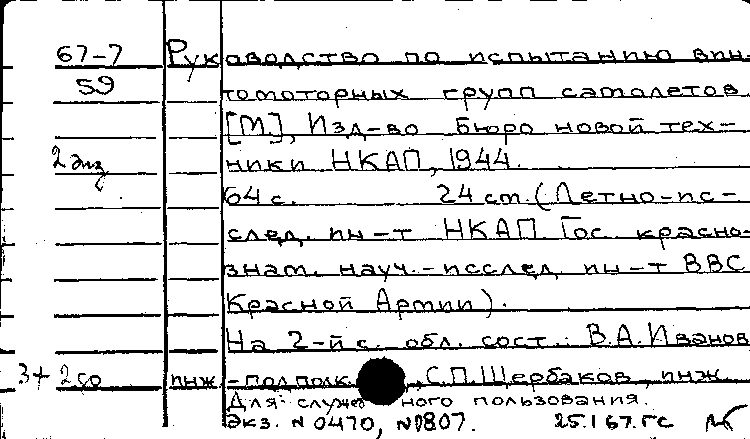 67-7 Руководство по испытанию вин-
59 томоторных групп самолетов.
[М], Изд-во Бюро новой тех-
2 экз ники НКАП, 1944.
64 с. 24 см. (Летно-ис-
след. ин-т НКАП. Гос. красно-
знам. науч.-исслед. ин-т ВВС
Красной Армии).
На 2-й с. обл. сост.: В.А. Иванов
инж.-подполк. , С.П. Щербаков, инж.
Для служебного пользования.
Экз. N 0470, N 0807. 25.I 67. ГС